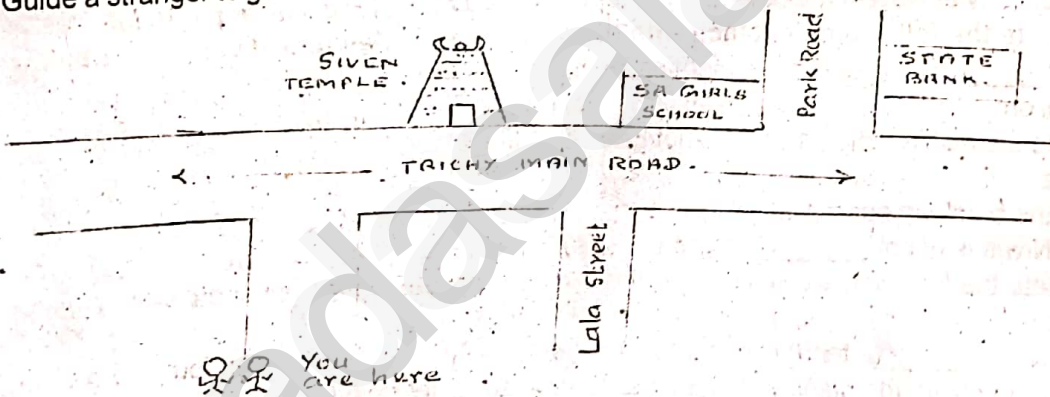 Guide a stranger to g
SIVEN
TEMPLE.
SA GIRLS
SCHOOL
Park Road
STATE
BANK.
TRICHY MAIN ROAD.
Lala Street
You
are here
adasala